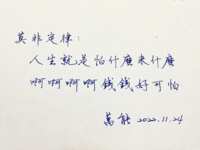 莫非定律：
人生就是怕什麼來什麼
啊啊啊啊錢錢好可怕
萬能 2022.11.24